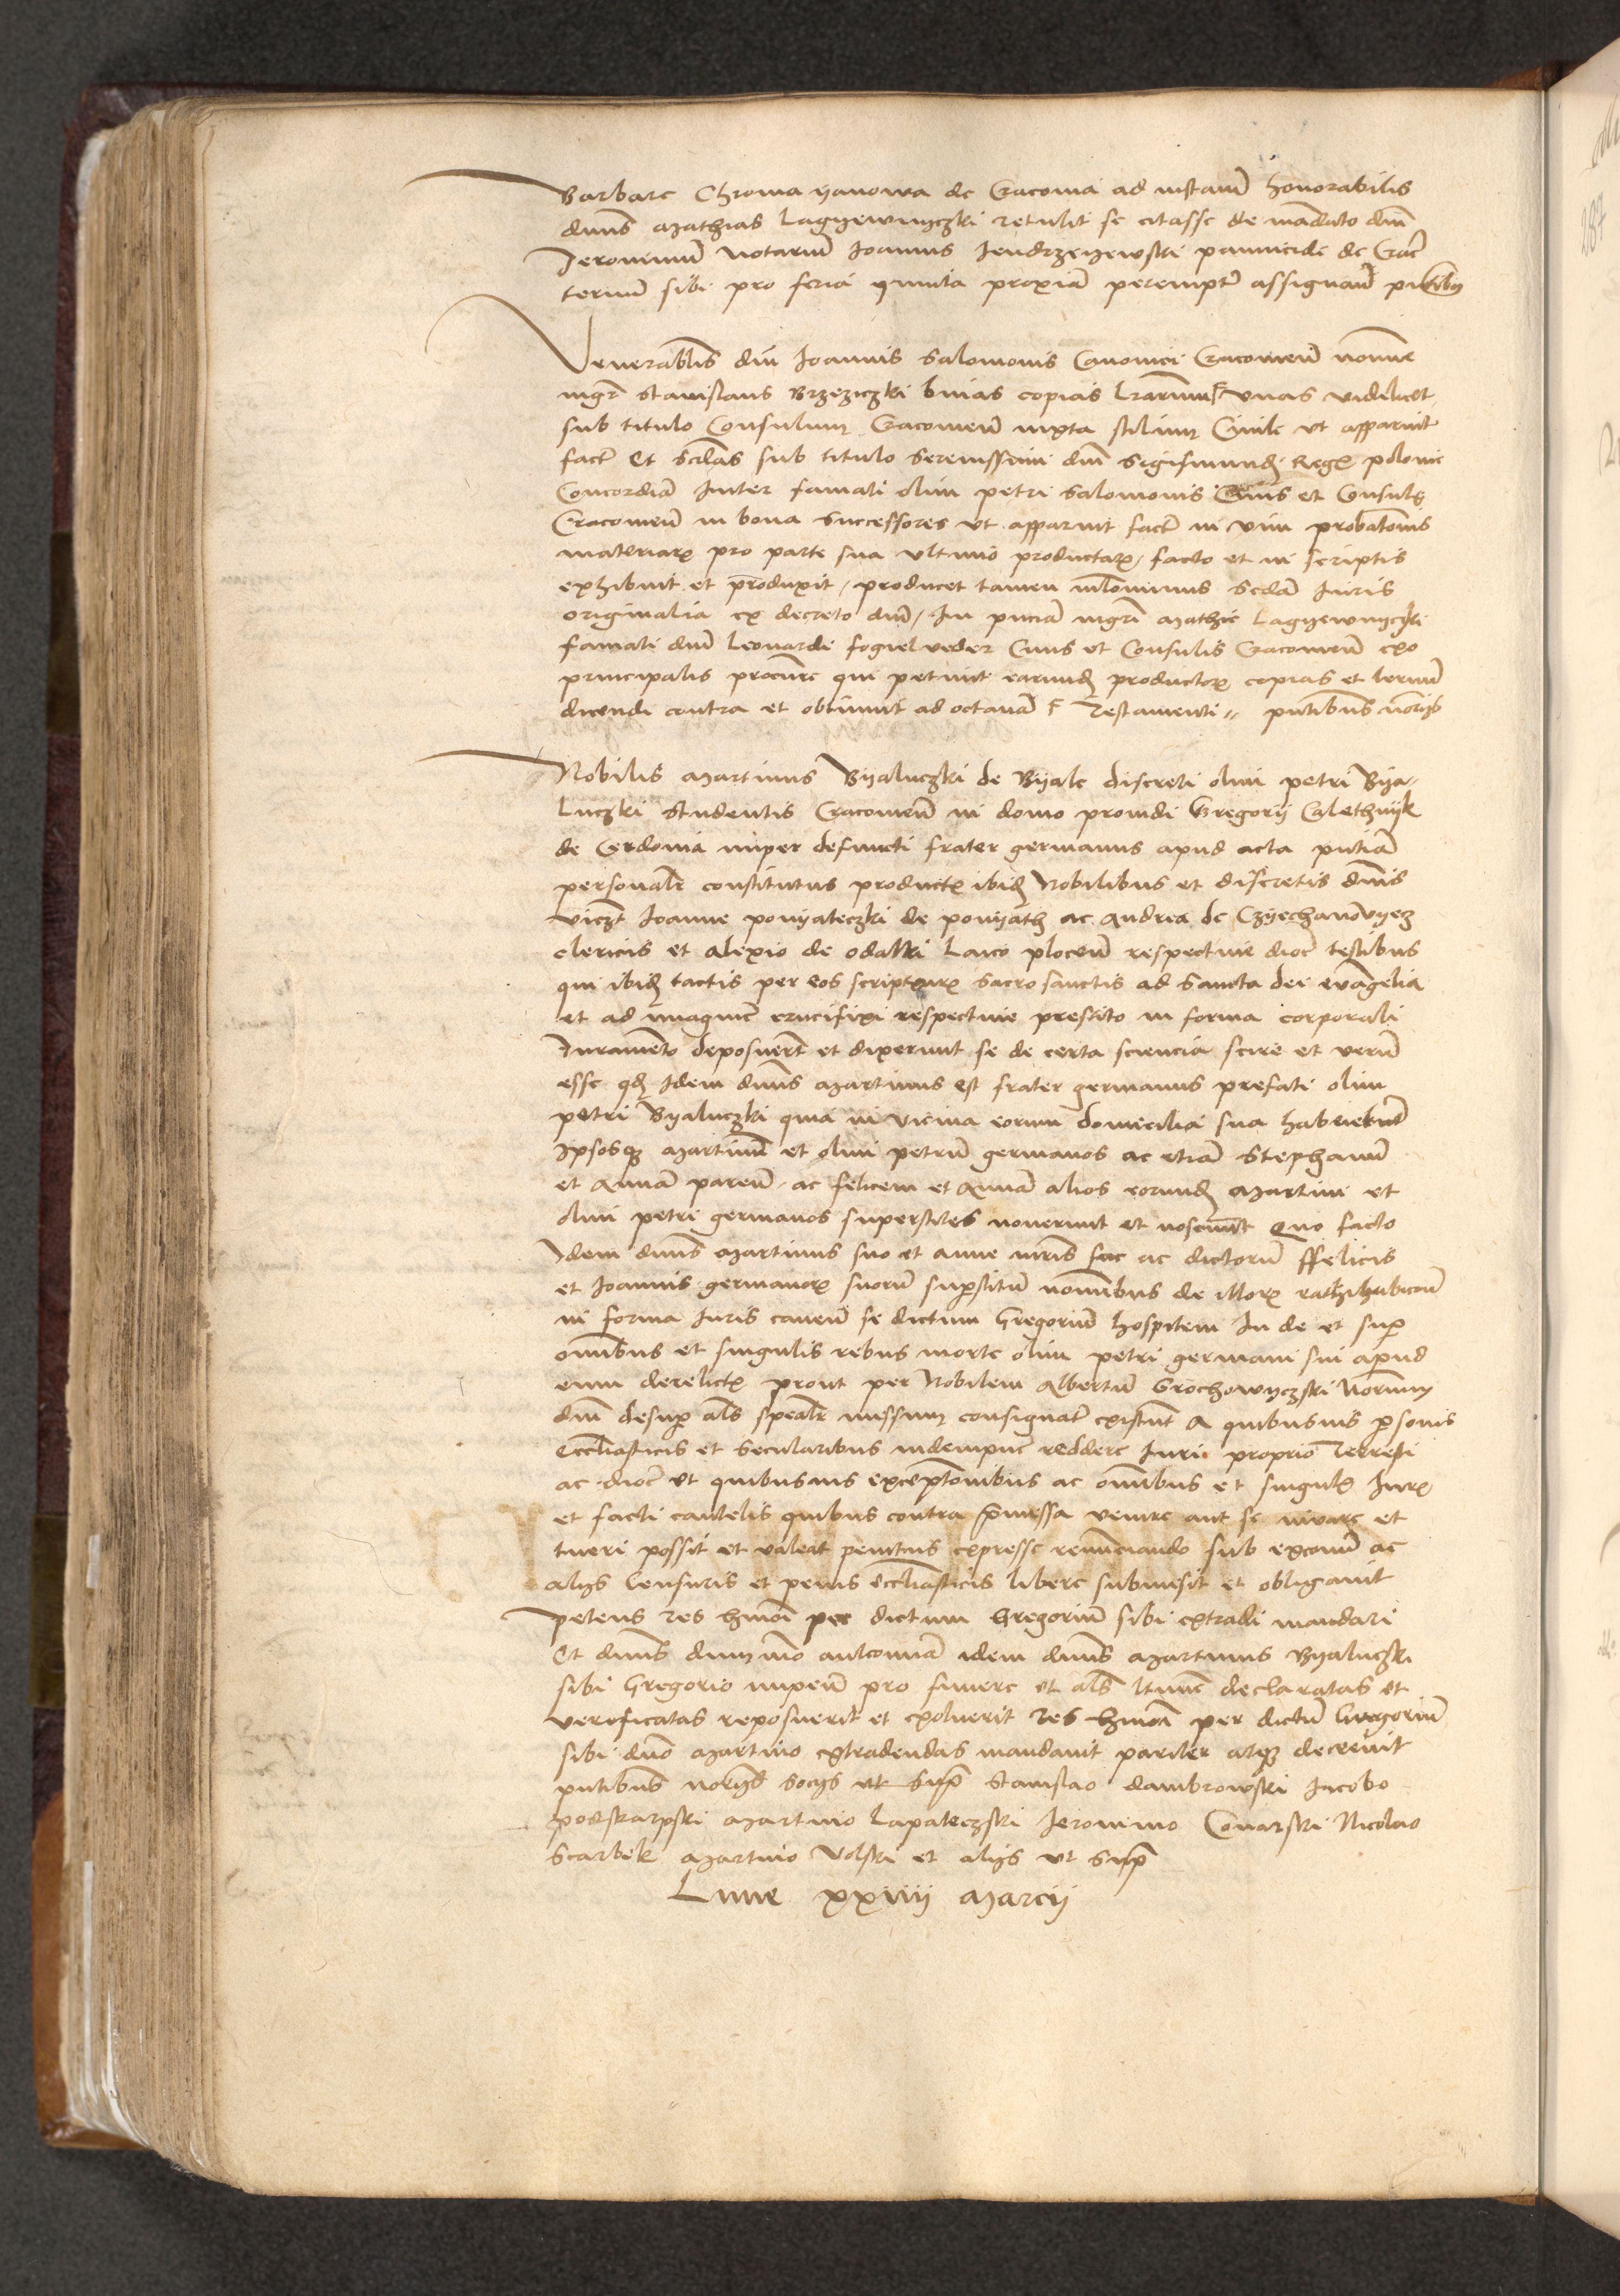 Barbare Chroma yanowa de Cracovia ad instanciam honorabilis
dominus Mathias Lagyewnyczki retulit se citasse de mandato domini
Jeronimum Notarium Joannis Jendrzeyewski pannicide de Crac
terminum sibi pro feria quinta proxima perempt assignavit pntibus
Venerabilis dni Joannis Salomonis Canonici Cracovien nomine
mgr Stanislaus Brzeziczki binas copias lrarum unas videlicet
sub titulo Consulum Cracovien iuxta stilum Civile ut apparuit
fact Et scdas sub titulo Serenissimi dni Sigismundi Regis polonie
Concordiam inter famati olim petri Salomonis Civis et Consulis
Cracovien in bona successores ut apparuit fact in vim probationis
materiarum pro parte sua ultimo productarum facto et in scriptis
exhibuit et produxit, producet tamen nihilominus scdam Iuris
originalia ex decreto dni, In pntia mgri Mathie Lagyewnyczki
famati dni Leonardi fogielveder Civis et Consulis Cracovien exo
principalis procure qui petivit earundem productorum copias et terminum
dicendi contra et obtinuit ad octavam Testamenti pntibus noriis
Nobilis Martinus Byaluczki de Byale discreti olim petri Bya-
luczki studentis Cracovien in domo providi Gregorii Calethnyk
de Cerdonia nuper defuncti frater germanus apud acta pntia
personalr constitutus productis ibidem Nobilibus et discretis dnis
viczt Joanne ponyateczki de ponyath ac Andrea de Czyechanovyecz
clericis et Alexio de odalki laico plocen respective dioc testibus
qui ibidem tactis per eos scripturis sacro sanctis ad sancta dei evangelia
et ad imaginem crucifixi respective prestito in forma corporali
Iuramento deposuerunt et dixerunt se de certa sciencia scire et verum
esse qd Idem dnus Martinus est frater germanus prefati olim
petri Byaluczki quia in vicina eorum domicilia sua habuerunt
Ipsosque Martinum et olim petrum germanos ac etiam Stephanum
et Annam paren, ac felicem et Annam alios eorundem Martini et
olim petri germanos superstites noverunt et noscunt Quo facto
Idem dnus Martinus suo et Anne mris sue ac dictorum ffelicis
et Joannis germanorum suorum superstitum nominibus de illorum rathihabicione
in forma Iuris caven se dictum Gregorium hospitem In de et super
omnibus et singulis rebus morte olim petri germani sui apud
eum derelictis prout per Nobilem Albertum Grochowyczski Norium
dni desuper als spealr missum consignat existunt a quibusvis personis
ecclesiasticis et secularibus indempne reddere Iuri proprio Terresti
ac dioc et quibusvis exceptionibus ac omnibus et singulis Iuris
et facti cautelis quibus contra premissa venire aut se iuvare et
tueri possit et valeat penitus expresse renunciando sub excom ac
aliis Censuris et penis ecclesiasticis libere submisit et obligavit
petens res hmoi per dictum Gregorium sibi extradi mandari
Et dnus dummodo idem dnus Martinus Byaluczki
sibi Gregorio impen pro funere et als declaratas et
verificatas reposuerit et exolverit Res hmoi per dictum Gregorium
sibi dno Martino extradendas mandavit pariter atque decrevit
pntibus noriis sociis ut supra Stanislao dambrowski Jacobo
podskarpski Martino Lapateczski Jeronimo Conarski Nicolao
Scarbek Martino Volski et aliis ut supra
Lune xxiiii Marcii